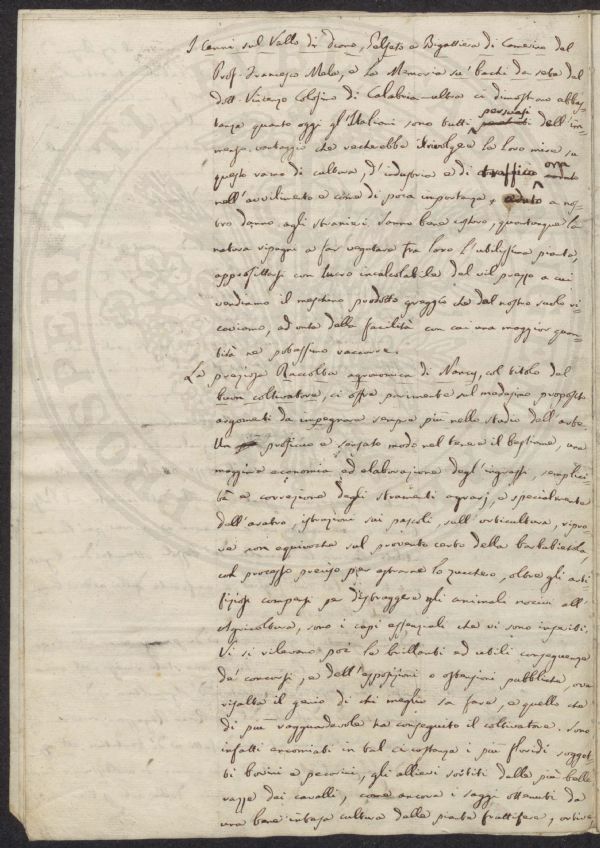 I Cenni sul Vallo di Diano, Gelseto e Bigattiera di Camerino del
Prof. Francesco Mola, e la Memoria su' bachi da seta del
dott. Vincenzo Colosimo di Calabria-ultra ci dimostrano abbas=
tanza quanto oggi gl'Italiani sono tutti persuasi dell'im=
menso vantaggio che recherebbe il rivolgere le loro mire su
questo ramo di cultura, d'industria e di traffico ora
nell'avvilimento e cosa di poca importanza, e ceduto a nos=
tro danno agli stranieri. Sanno bene costoro, quantunque la
natura ripugni a far vegetare fra loro l'utilissima pianta,
approfittarsi con lucro incalcolabile del vil prezzo a cui
vendiamo il meschino prodotto greggio che dal nostro suolo ri=
caviamo, ad onta della facilità con cui una maggior quan=
tità ne potessimo raccorre.
La preziosa Raccolta agronomica di Nancy, col titolo del
buon coltivatore, ci offre parimente sul medesimo proposito
argomenti da impegnare sempre più nello studio dell'arte.
Un proficuo e sensato modo nel tenere il bestiame, una
maggiore economia ed elaborazione degl'ingrassi, semplici=
tà e correzione degli strumenti agrarj, e specialmente
dell'aratro, istruzioni sui pascoli, sull'orticultura, ripro=
ve non equivoche sul provento certo della barbabietola,
col processo preciso per estrarne lo zucchero, oltre gli arti
fiziosi compensi per distruggere gli animali nocivi all'
Agricoltura, sono i capi essenziali che vi sono inseriti.
Vi si rilevano poi le brillanti ed utili conseguenze
de' concorsi, e dell'esposizioni o ostensioni pubbliche, ove
risalta il genio di chi meglio sa fare, e quello che
di più ragguardevole ha conseguito il coltivatore. Sono
infatti encomiati in tal circostanza i più floridi sogget=
ti bovini e pecorini, gli allievi sortiti dalle più belle
razze dei cavalli, come ancora i saggi ottenuti da
una bene intesa cultura delle piante fruttifere, ortive,